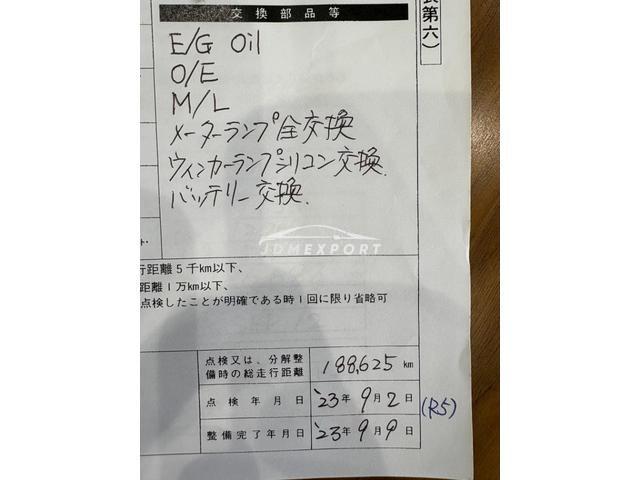 交換部品等
表第六）
E/G Oil
O/E
M/L
メーターランプ全交換
ウィンカーランプシリコン交換.
バッテリー交換.
JDMEXPORT
行距離5千km以下、
距離1万km以下、
点検したことが明確である時1回に限り省略可
点検又は、分解整備時の総走行距離 188,625 km
点検年月日 '23年9月2日
(R5)
整備完了年月日 '23年9月9日